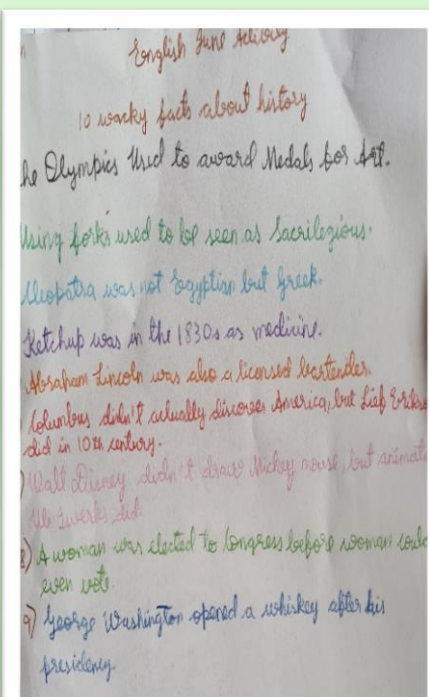 English June Activity
10 wacky facts about history
he Olympics Used to award Medals for Art.
Using forks used to be seen as Sacrilegious.
Cleopatra was not Egyptian but Greek.
Ketchup was in the 1830s as medicine.
Abraham Lincoln was also a licensed bartender.
Columbus didn't actually discover America, but Lief Erikso
did in 10th century.
) Walt Disney didn't draw Mickey mouse, but animat
Ub Iwerks did.
8) A woman was elected to Congress before woman could
even vote.
9) George Washington opened a whiskey after his
presidency.